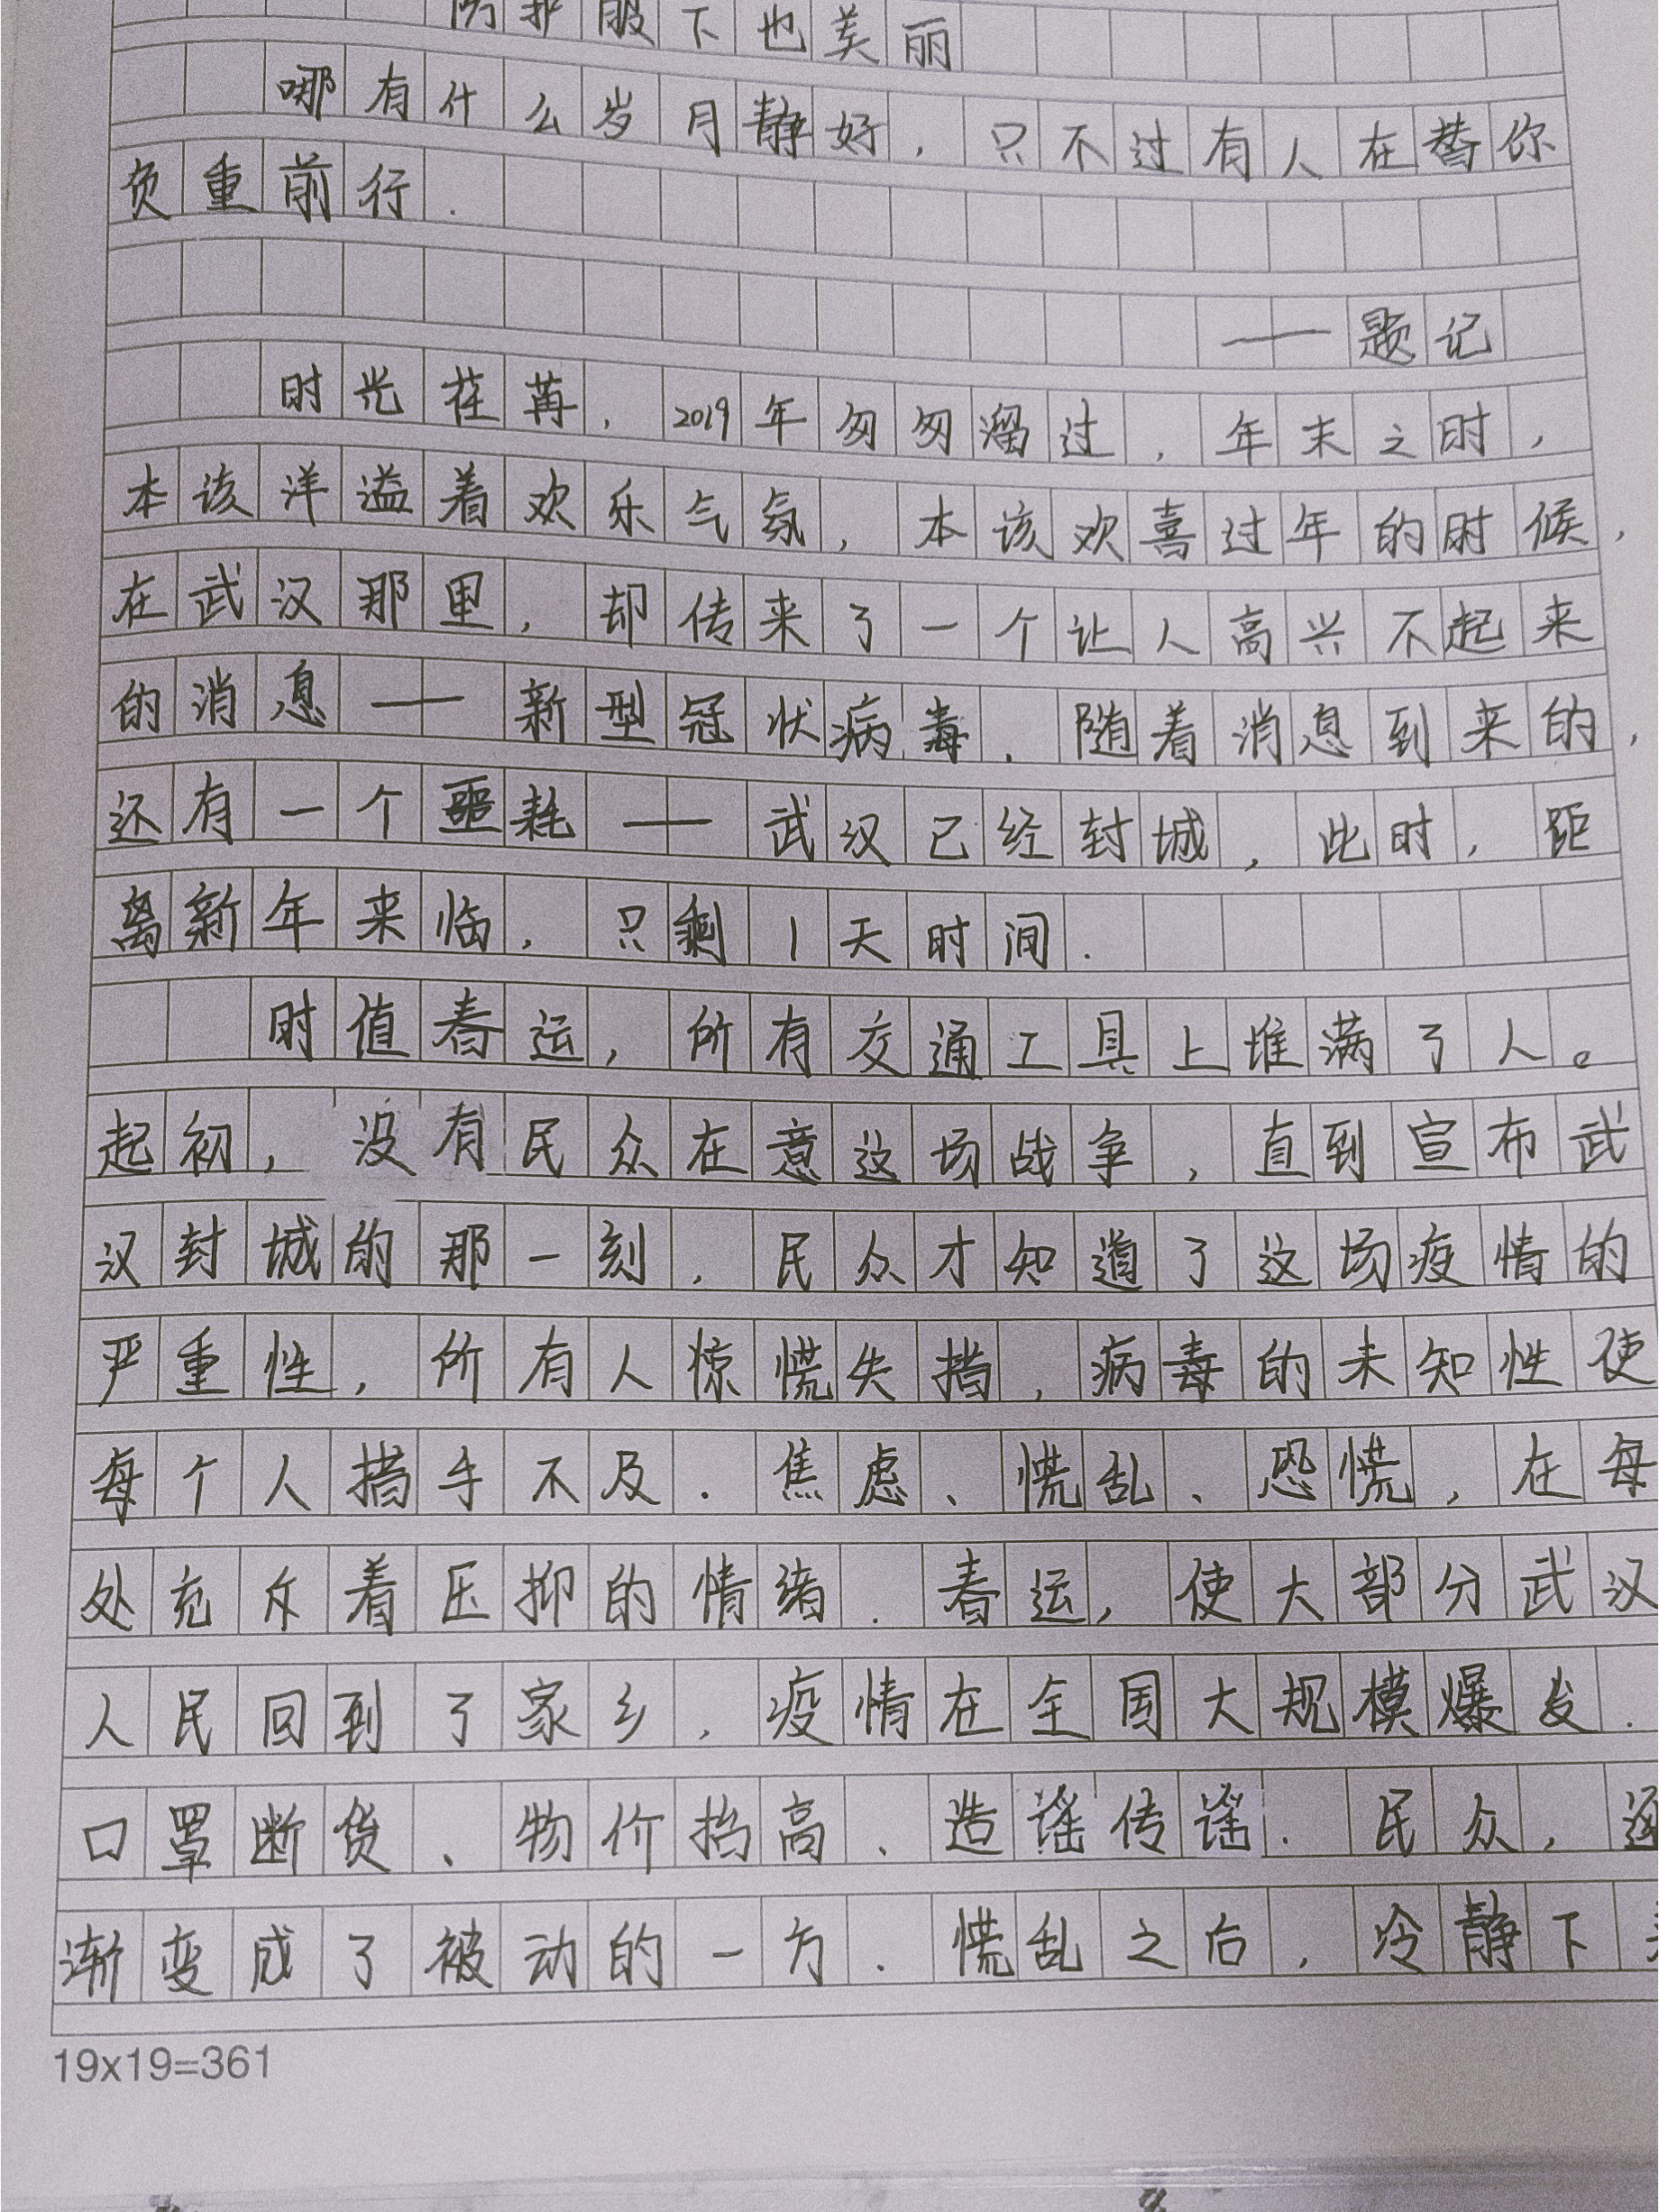 防护服下也美丽
哪有什么岁月静好，只不过有人在替你
负重前行.
——题记
时光荏苒，2019年匆匆溜过，年末之时，
本该洋溢着欢乐气氛，本该欢喜过年的时候，
在武汉那里，却传来了一个让人高兴不起来
的消息——新型冠状病毒.随着消息到来的，
还有一个噩耗——武汉已经封城，此时，距
离新年来临，只剩1天时间.
时值春运，所有交通工具上堆满了人。
起初，没有民众在意这场战争，直到宣布武
汉封城的那一刻，民众才知道了这场疫情的
严重性，所有人惊慌失措，病毒的未知性使
每个人措手不及.焦虑、慌乱、恐慌，在每
处充斥着压抑的情绪.春运，使大部分武汉
人民回到了家乡，疫情在全国大规模爆发.
口罩断货、物价抬高、造谣传谣.民众，逐
渐变成了被动的一方.慌乱之后，冷静下来
19x19=361